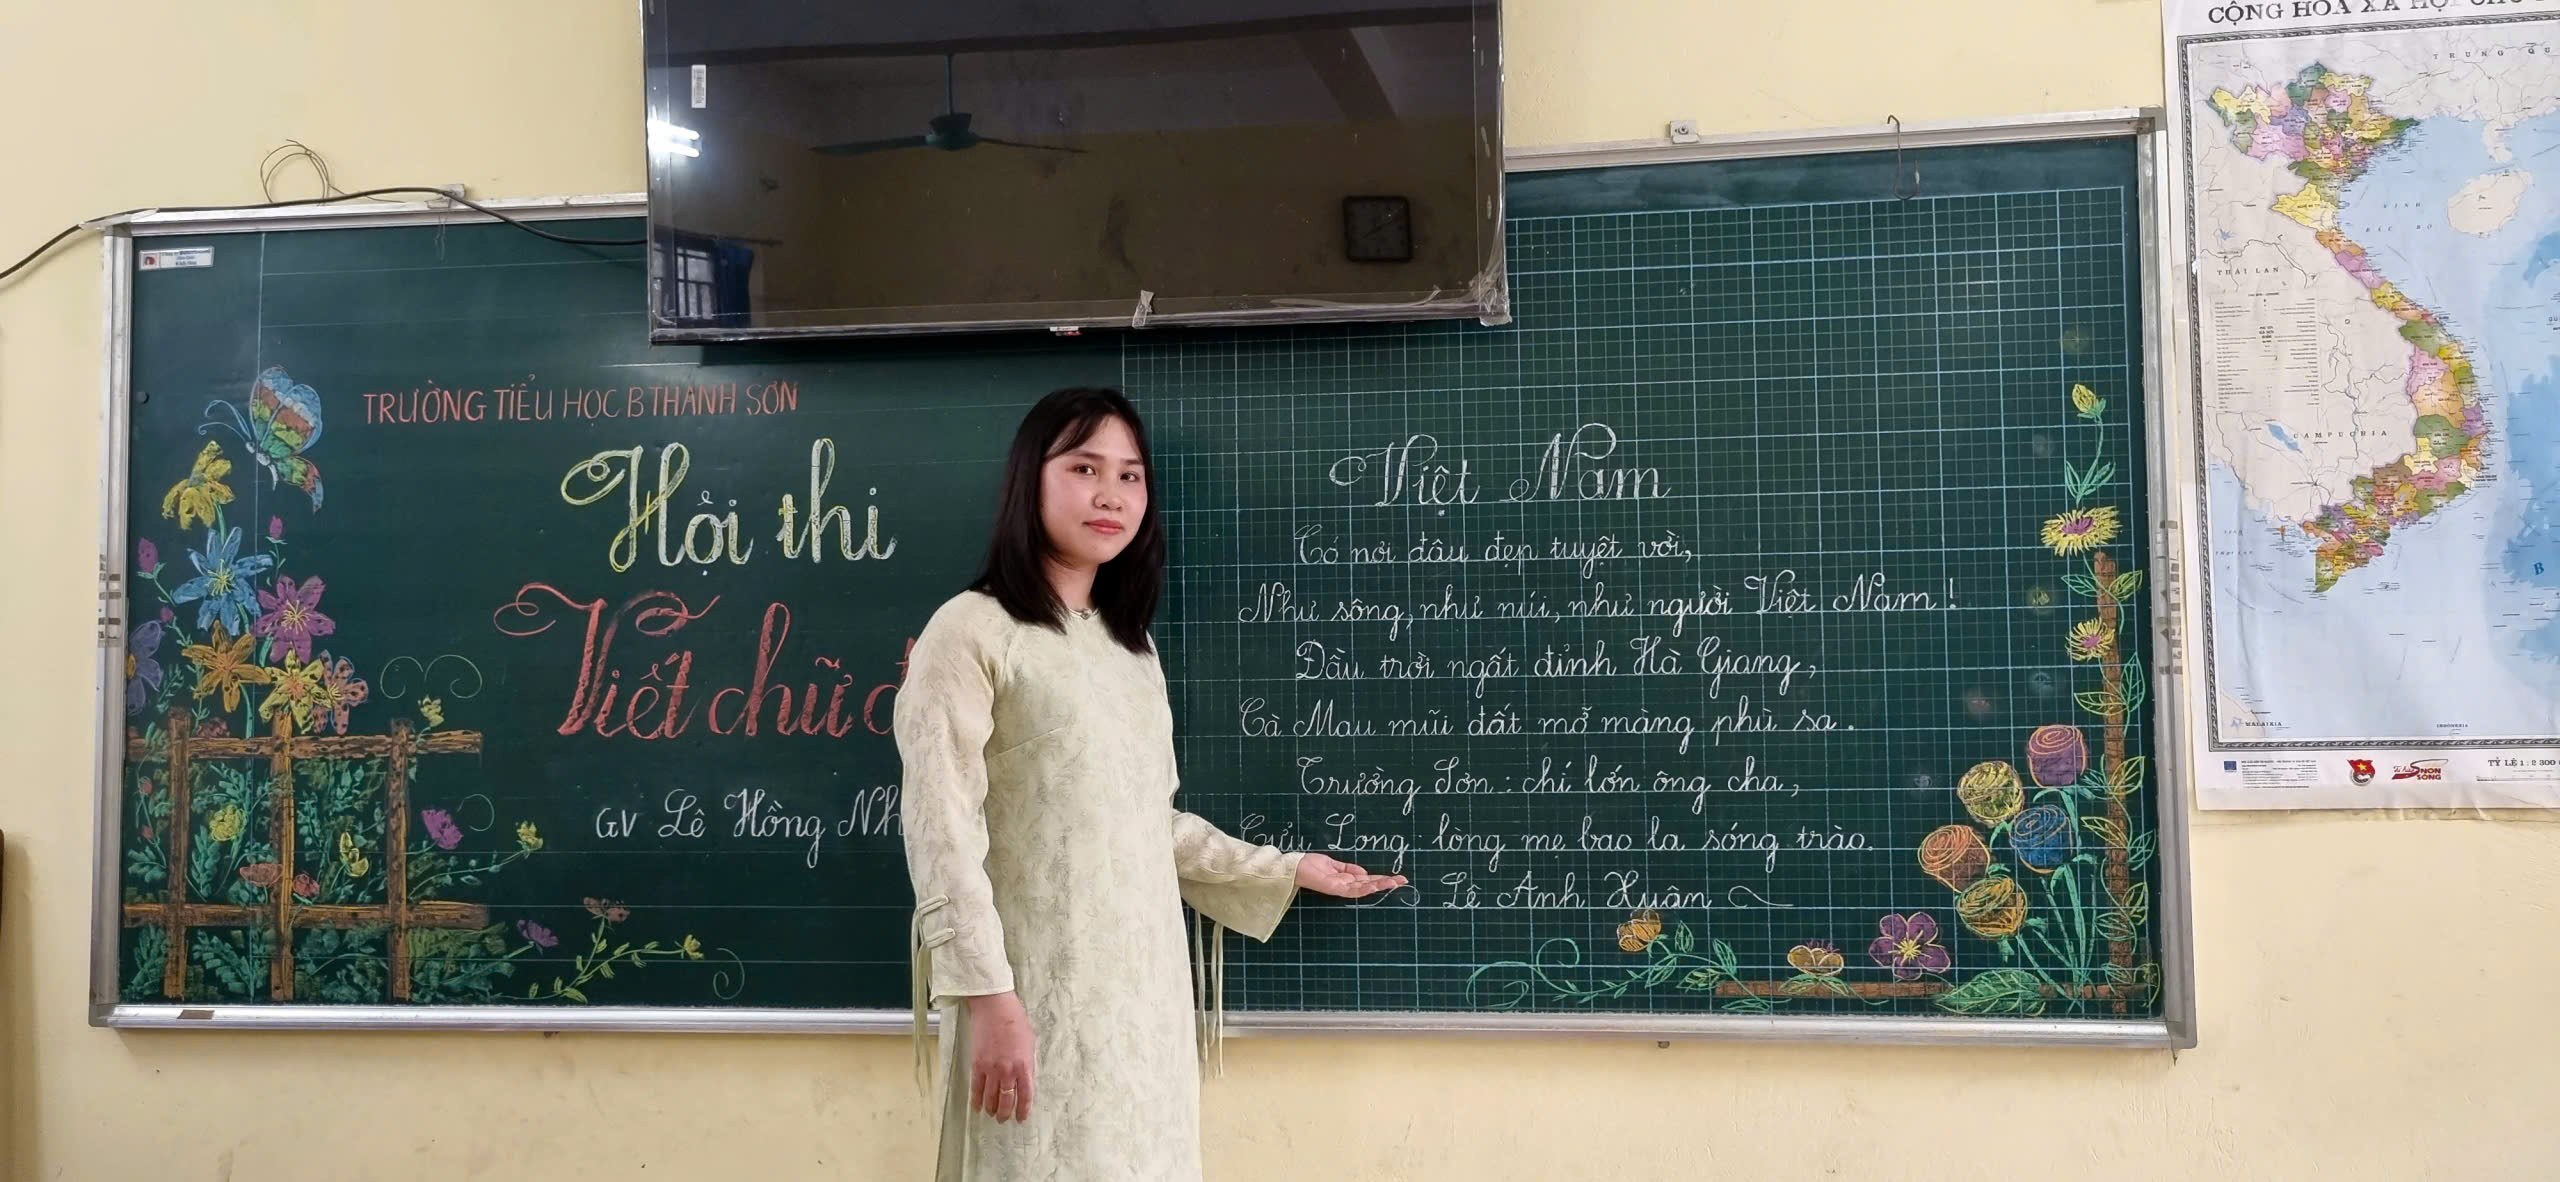 TRƯỜNG TIỂU HỌC B THANH SƠN
Hội thi
Viết chữ đ
GV Lê Hồng Nh
Việt Nam
Có nơi đâu đẹp tuyệt vời,
Như sông, như núi, như người Việt Nam!
Đầu trời ngất đỉnh Hà Giang,
Cà Mau mũi đất mỡ màng phù sa.
Trường Sơn: chí lớn ông cha,
Cửu Long: lòng mẹ bao la sóng trào.
Lê Anh Xuân
CỘNG HÒA XÃ HỘI CHỦ
TRUNG QU
VỊNH
BẮC BỘ
THÁI LAN
CAMPUCHIA
MALAIXIA
INĐÔNÊXIA
B
NON SÔNG
TỶ LỆ 1 : 2 300